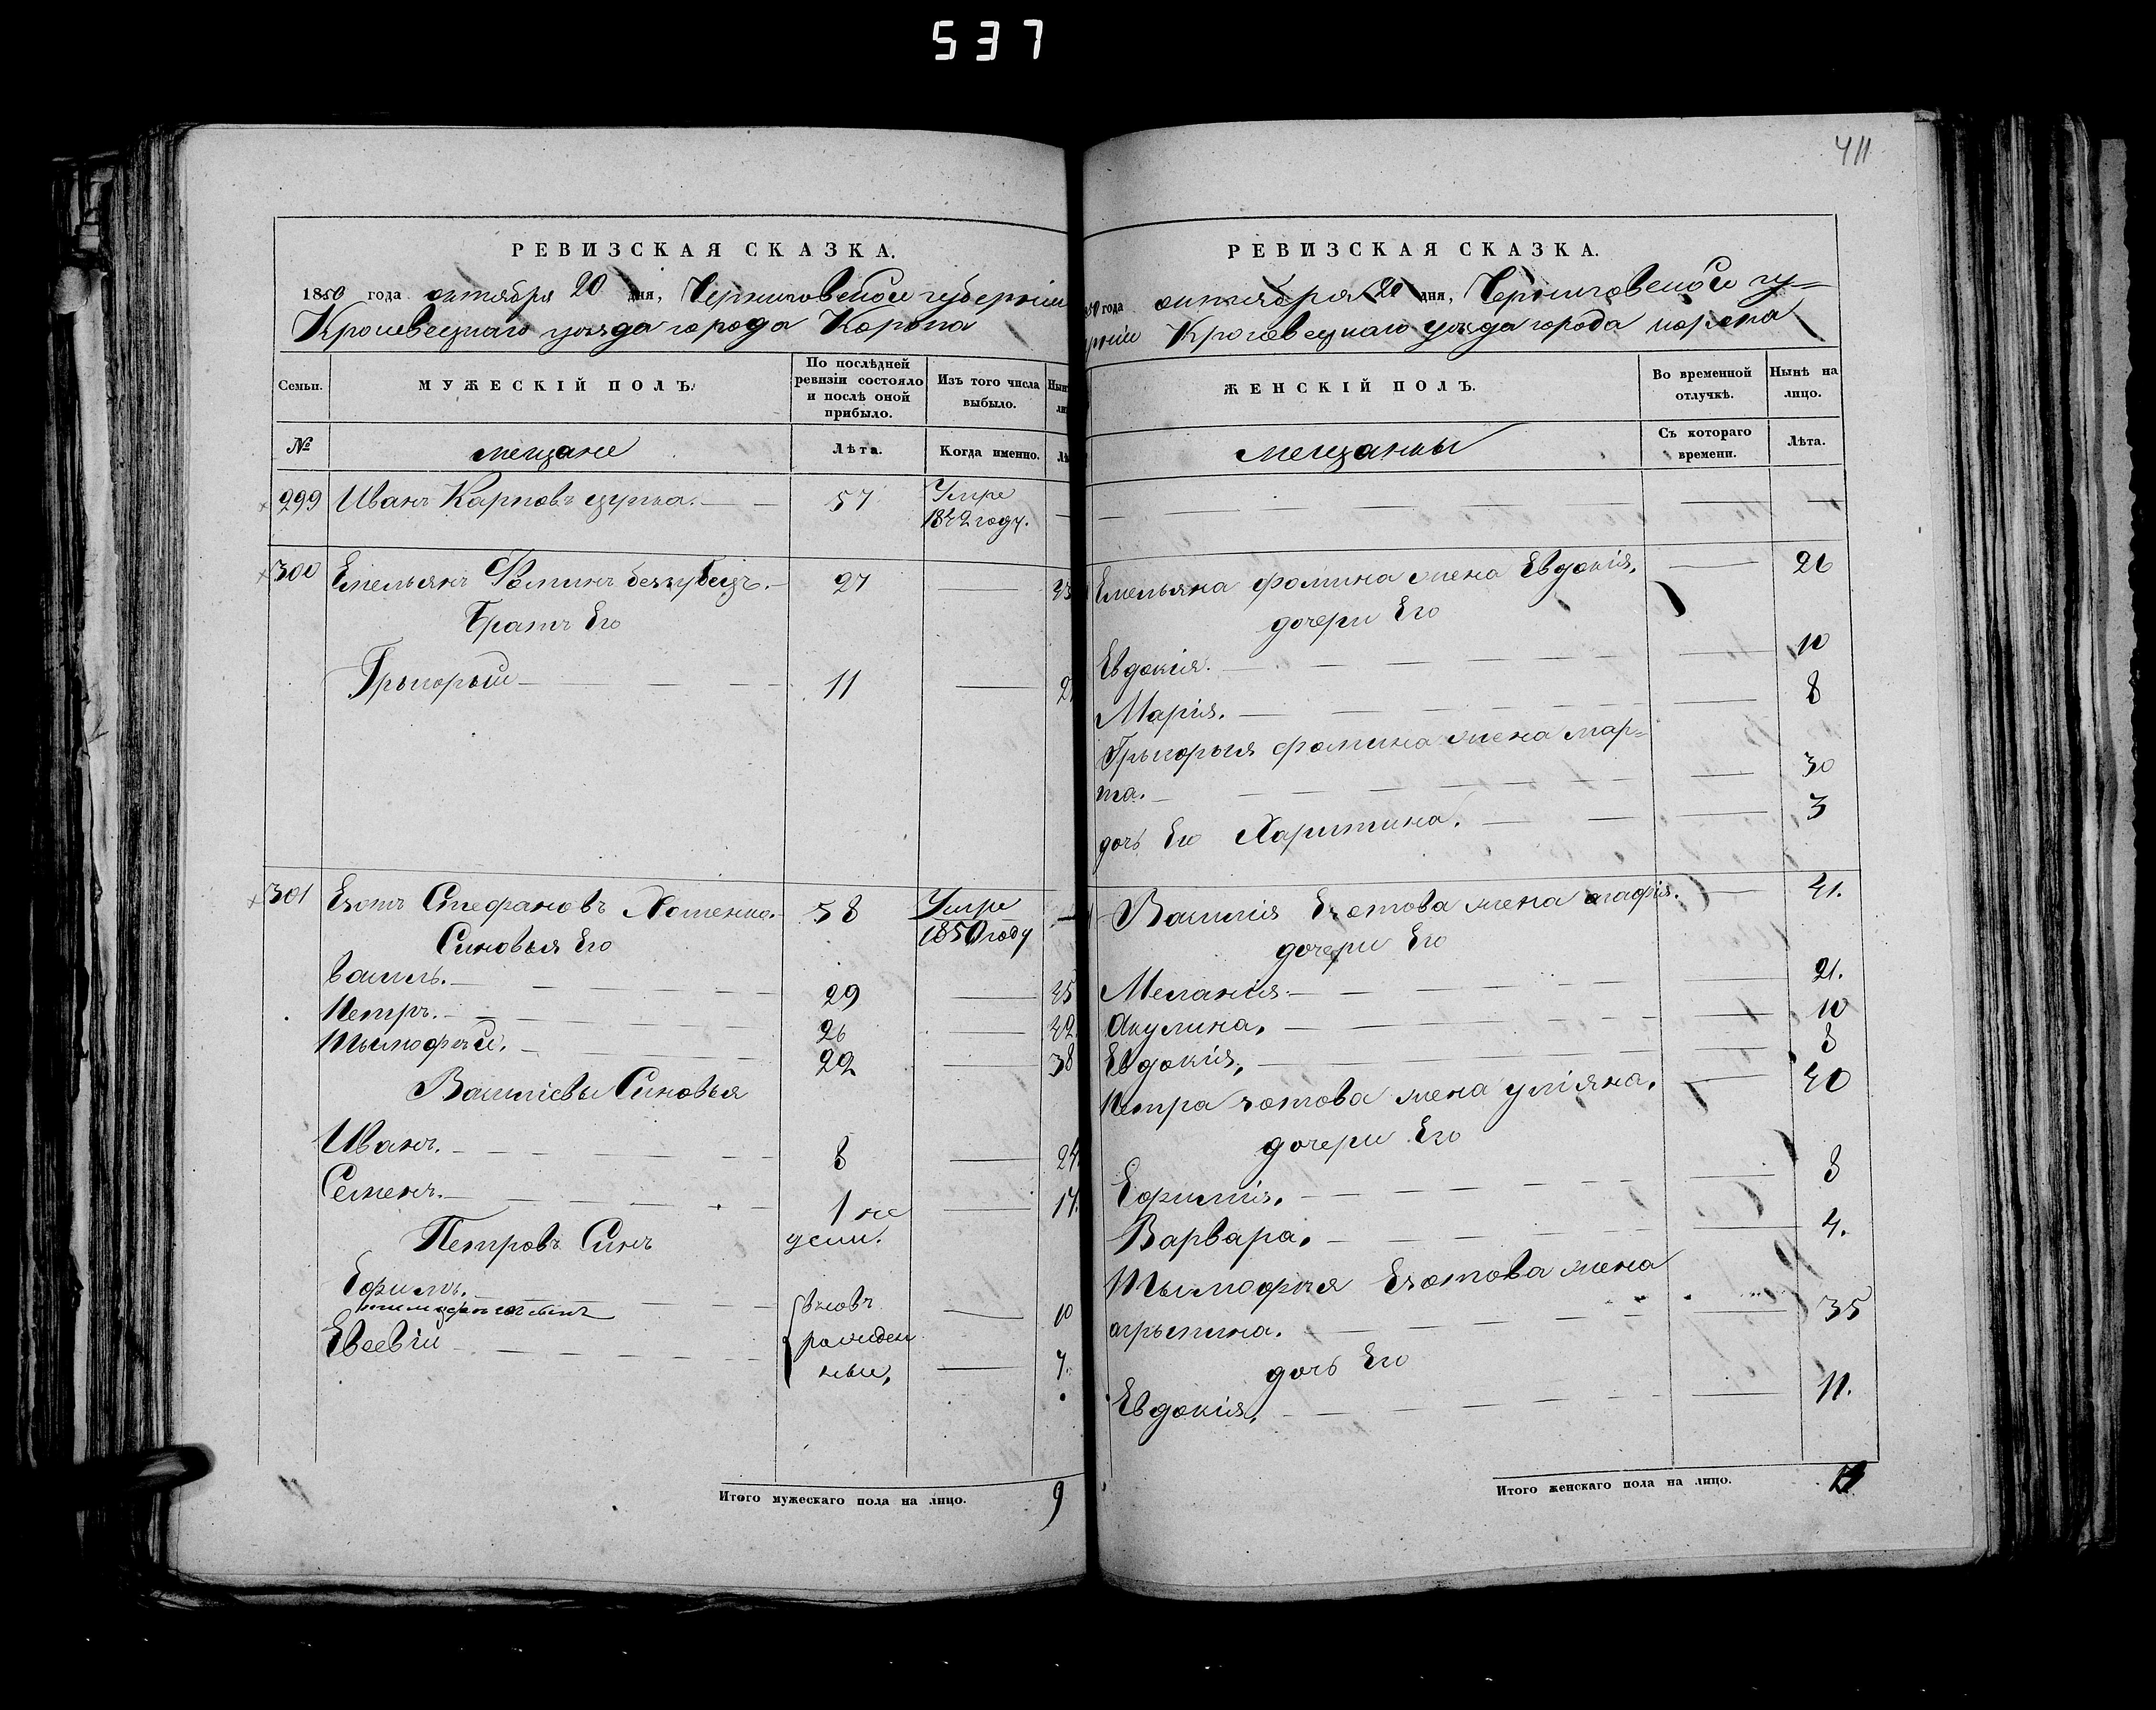 537
411
РЕВИЗСКАЯ СКАЗКА.
1850 года октября 20 дня, Черниговской губерніи
Кролевецкаго уезда города Коропа
Семьи.
МУЖЕСКІЙ ПОЛЪ.
По послѣдней
ревизіи состояло
и послѣ оной
прибыло.
Изъ того числа
выбыло.
№
мещане
Лѣта.
Когда именно.
299 Иванъ Карповъ 57 Умре
1842 году.
300 Емельянъ Фоминъ 27
Братъ Его
Грыгорый 11
301 Стефановъ Хоменко. 58 Умре
1850 году
Синовья Его
Василь. 29 45
Петръ. 26 42
Тымофей. 22 38
Василіевы Синовья
Иванъ. 8 24
Семенъ. 1 не
дели. 17.
Петровъ Синъ
Ефимъ. вновь 10
рожден
ные,
Евсевій
Итого мужескаго пола на лицо. 9
РЕВИЗСКАЯ СКАЗКА.
года октября 20 дня, Черниговской гу=
Кролевецкаго уезда города коропа
ЖЕНСКІЙ ПОЛЪ.
Во временной
отлучкѣ.
Нынѣ на
лицо.
мещанкы
Съ котораго
времени.
Лѣта.
Емельяна фомина жена Евдокія, 26
дочери Его
Евдокія. 10
Марія. 8
Грыгорыя фомина жена мар=
та. 30
дочь Его Харитина. 3
Василія жена агафія. 41.
дочери Его
Меланія 21.
Акулина, 10
Евдокія, 8
Петра жена уліяна, 40
дочери Его
Ефимія, 8
Варвара, 4.
Тымофея жена
агрыпина. 35
дочь Его
Евдокія, 11.
Итого женскаго пола на лицо.